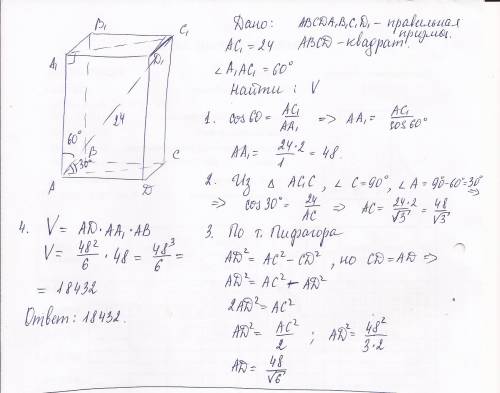 Дано: ABCDA₁B₁C₁D₁ - правильная
призмы.
AC₁ = 24 ABCD - квадрат.
∠A₁AC₁ = 60°
Найти: V
B₁
C₁
A₁
D₁
24
60°
B
30°
C
A
D
1. cos60 = AC₁/AA₁ => AA₁ = AC₁/cos60°
AA₁ = 24·2/1 = 48.
2. Из △ AC₁C, ∠C = 90°, ∠A = 90-60=30° =>
=> cos30° = 24/AC => AC = 24·2/√3 = 48/√3
3. По т. Пифагора
AD² = AC² - CD², но CD = AD =>
AD² = AC² - AD²
2AD² = AC²
AD² = AC²/2 ; AD² = 48²/3·2
AD = 48/√6
4. V = AD·AA₁·AB
V = 48²/6 · 48 = 48³/6 =
= 18432
Ответ: 18432.